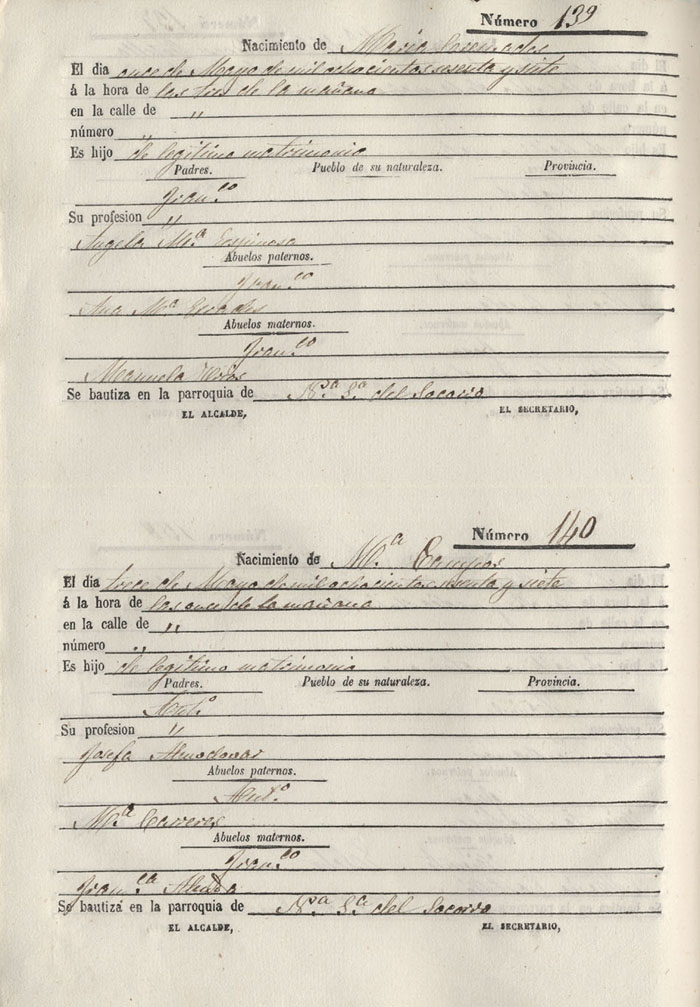 Número 139
Nacimiento de Maria
El dia once de Mayo de mil ochocientos sesenta y siete
á la hora de las tres de la mañana
en la calle de "
número "
Es hijo de legitimo matrimonio
Padres. Pueblo de su naturaleza. Provincia.
Fran.co
Su profesion "
Angela M.a Espinosa
Abuelos paternos.
Fran.co
Ana M.a
Abuelos maternos.
Fran.co
Manuela
Se bautiza en la parroquia de N.sa S.a del Socorro
EL ALCALDE, EL SECRETARIO,
Número 140
Nacimiento de M.a Campos
El dia trece de Mayo de mil ochocientos sesenta y siete
á la hora de las once de la mañana
en la calle de "
número "
Es hijo de legitimo matrimonio
Padres. Pueblo de su naturaleza. Provincia.
Ant.o
Su profesion "
Josefa Almodovar
Abuelos paternos.
Ant.o
M.a Carreres
Abuelos maternos.
Fran.co
Fran.ca
Se bautiza en la parroquia de N.sa S.a del Socorro
EL ALCALDE, EL SECRETARIO,